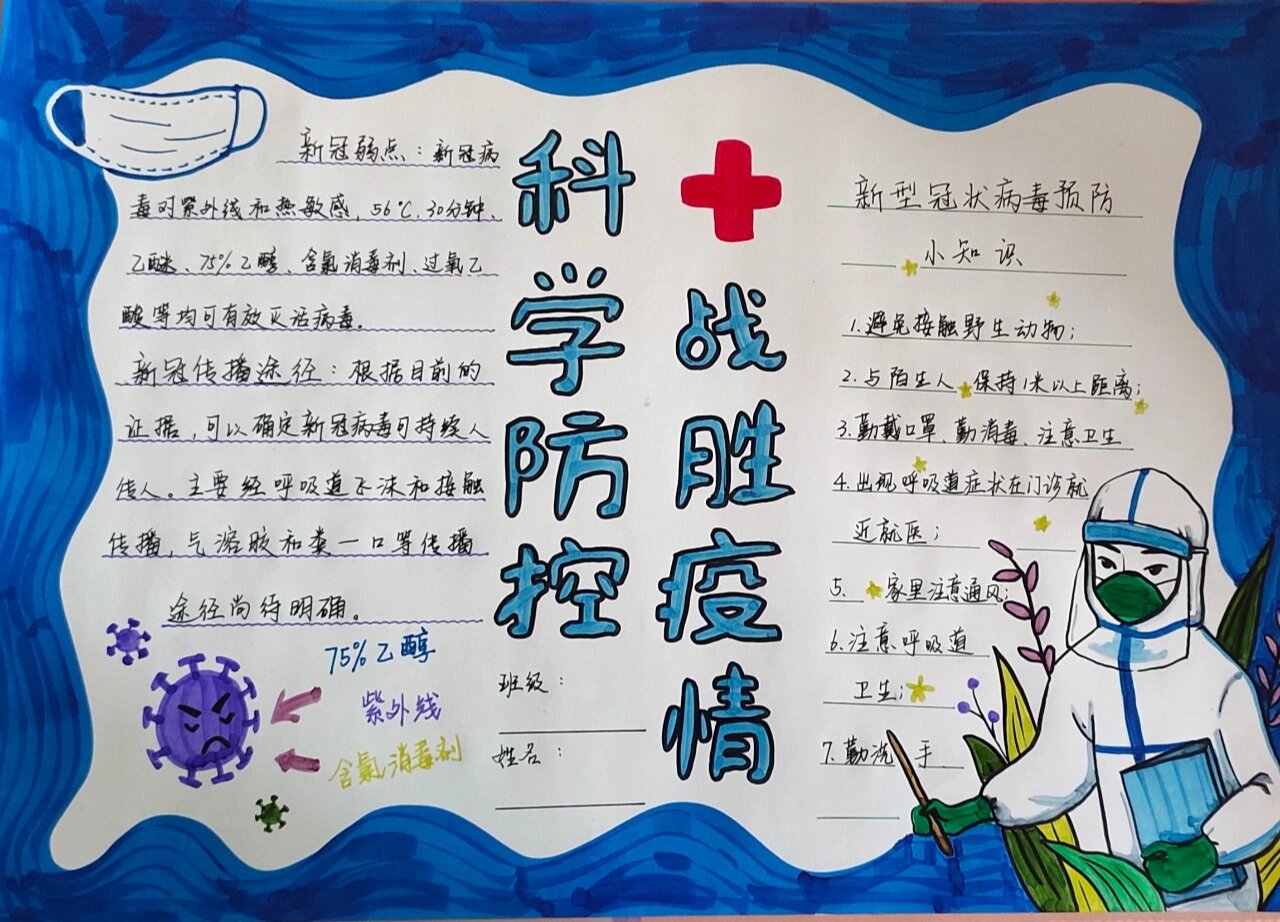 新冠弱点：新冠病
毒对紫外线和热敏感，56℃，30分钟、
乙醚、75%乙醇、含氯消毒剂、过氧乙
酸等均可有效灭活病毒。
新冠传播途径：根据目前的
证据，可以确定新冠病毒可持续人
传人。主要经呼吸道飞沫和接触
传播，气溶胶和粪一口等传播
途径尚待明确。
75%乙醇
紫外线
含氯消毒剂
科学防控
战胜疫情
班级：
姓名：
新型冠状病毒预防
小知识
1.避免接触野生动物；
2.与陌生人保持1米以上距离；
3.勤戴口罩、勤消毒、注意卫生
4.出现呼吸道症状在门诊就
近就医；
5.家里注意通风；
6.注意呼吸道
卫生；
7.勤洗手